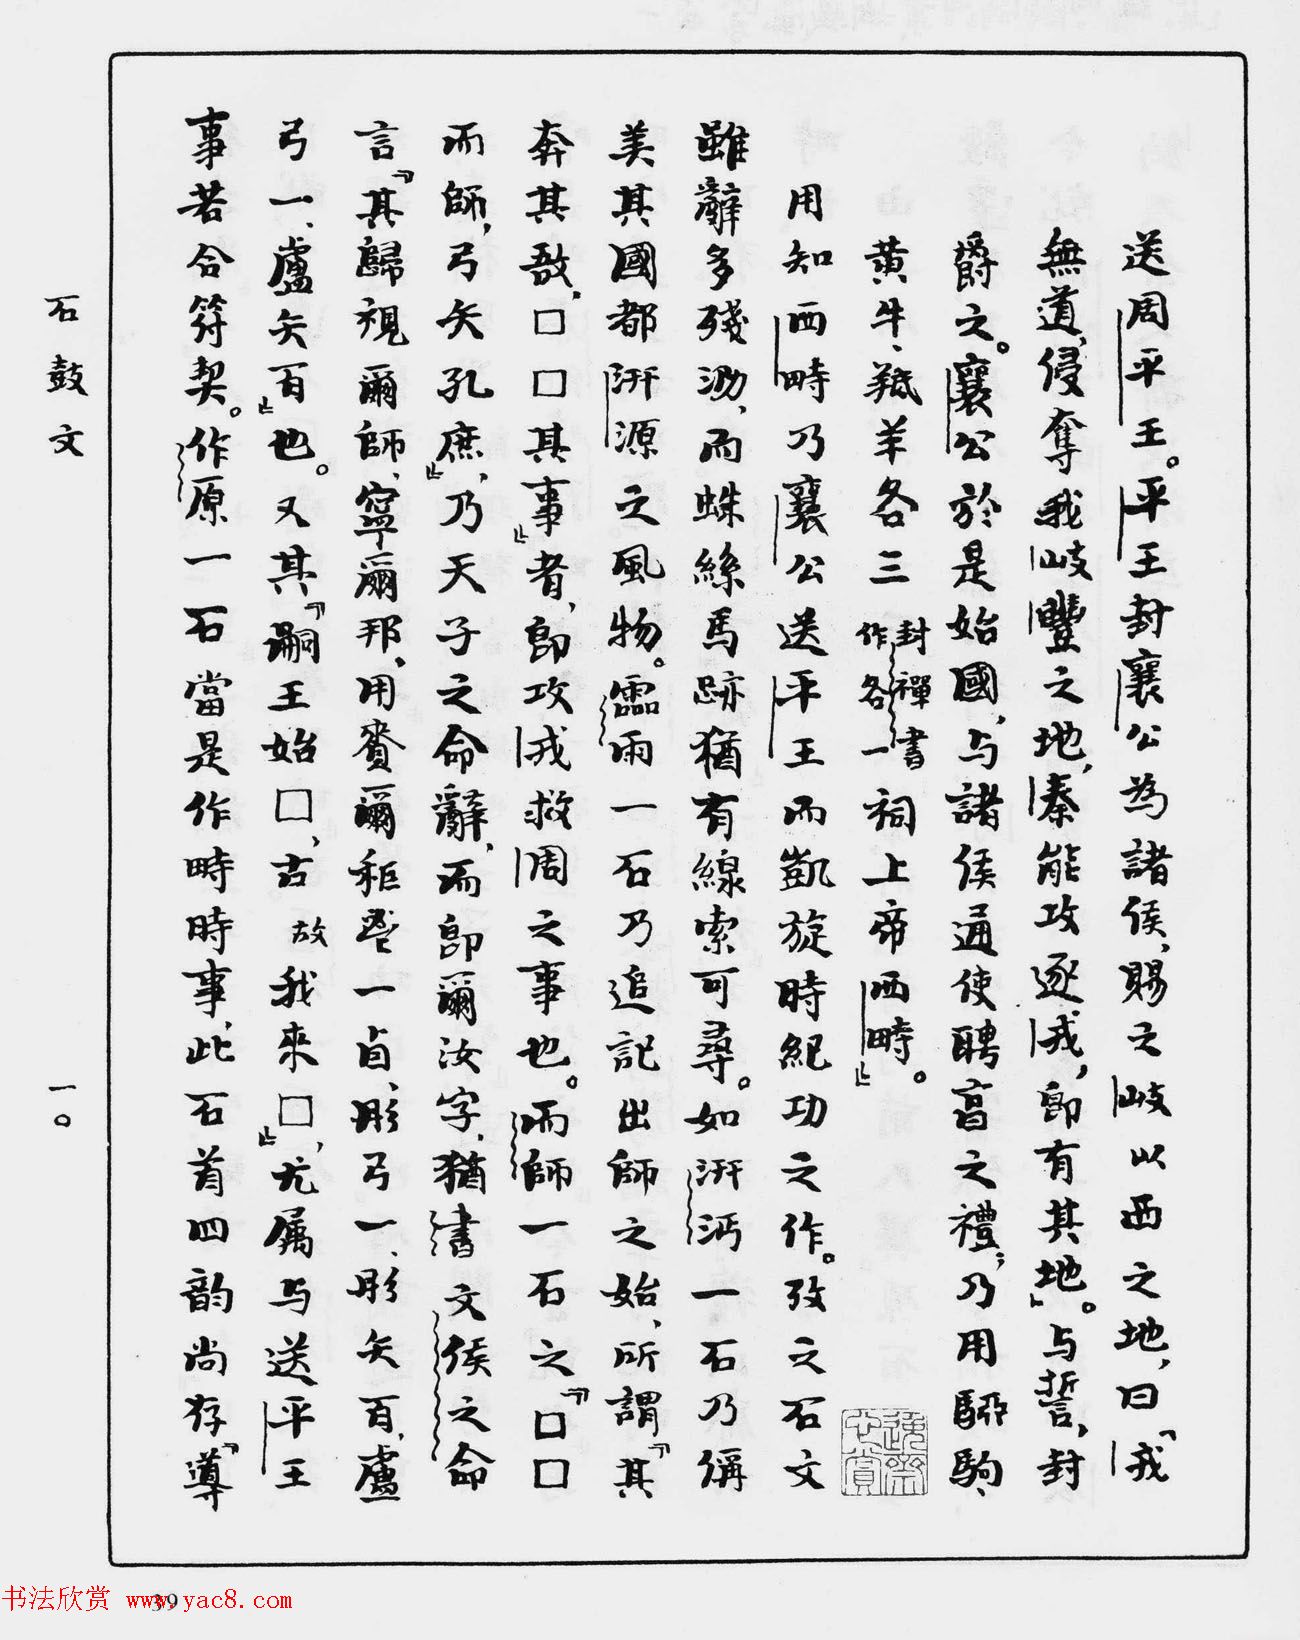 送周平王。平王封襄公為諸侯，賜之岐以西之地，曰『戎
無道，侵奪我岐豐之地，秦能攻逐戎，即有其地』。与誓，封
爵之。襄公於是始國，与諸侯通使聘享之禮；乃用駵駒、
黄牛、羝羊各三封禪書作各一祠上帝西畤』。
用知西畤乃襄公送平王而凱旋時紀功之作。攷之石文
雖辭多殘泐，而蛛絲馬跡猶有線索可尋。如汧沔一石乃稱
美其國都汧源之風物。霝雨一石乃追記出師之始，所謂『其
奔其敔，□□其事』者，即攻戎救周之事也。而師一石之『□□
而師，弓矢孔庶』，乃天子之命辭，而即爾汝字，猶書文侯之命
言『其歸視爾師，寧爾邦，用賚爾秬鬯一卣，彤弓一、彤矢百，盧
弓一、盧矢百』也。又其『嗣王始□，古故我來□』，尤属与送平王
事若合符契。作原一石當是作畤時事，此石首四韵尚存『導
石鼓文
一〇
39
书法欣赏 www.yac8.com